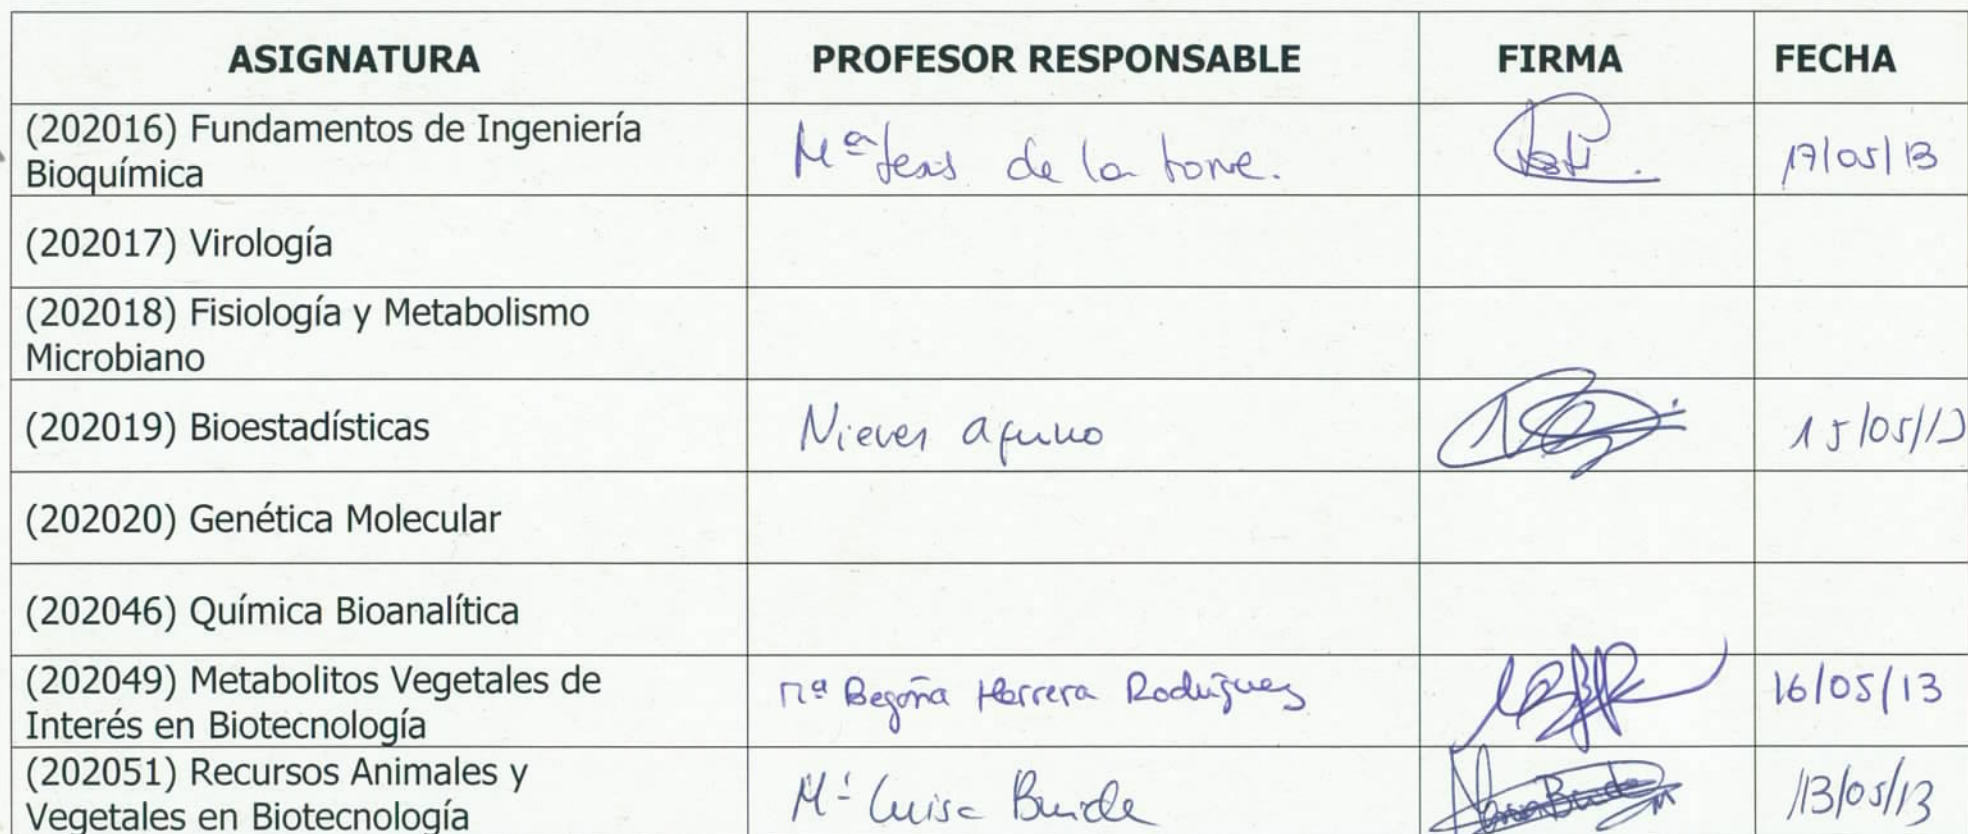 ASIGNATURA PROFESOR RESPONSABLE FIRMA FECHA
(202016) Fundamentos de Ingeniería
Bioquímica
Mª de la torre. 17/05/13
(202017) Virología
(202018) Fisiología y Metabolismo
Microbiano
(202019) Bioestadísticas Nieves aquino 15/05/13
(202020) Genética Molecular
(202046) Química Bioanalítica
(202049) Metabolitos Vegetales de
Interés en Biotecnología
Mª Begoña Herrera Rodríguez 16/05/13
(202051) Recursos Animales y
Vegetales en Biotecnología
Mª Luisa 13/05/13